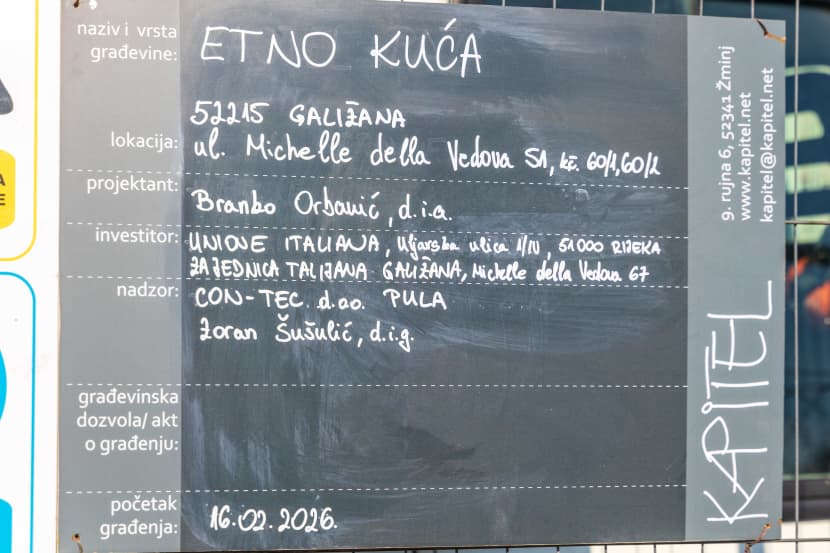 naziv i vrsta
građevine:
ETNO KUĆA
52215 GALIŽANA
lokacija:
ul. Michelle della Vedova 51, kč. 60/1, 60/2
projektant:
Branko Orbanić, d.i.a.
investitor:
UNIONE ITALIANA, Uljarska ulica 1/IV, 51000 RIJEKA
ZAJEDNICA TALIJANA GALIŽANA, Michelle della Vedova 67
nadzor:
CON-TEC d.o.o. PULA
Zoran Šušulić, d.i.g.
građevinska
dozvola/ akt
o građenju:
početak
građenja:
16.02.2026.
9. rujna 6, 52341 Žminj
www.kapitel.net
kapitel@kapitel.net
KAPITEL